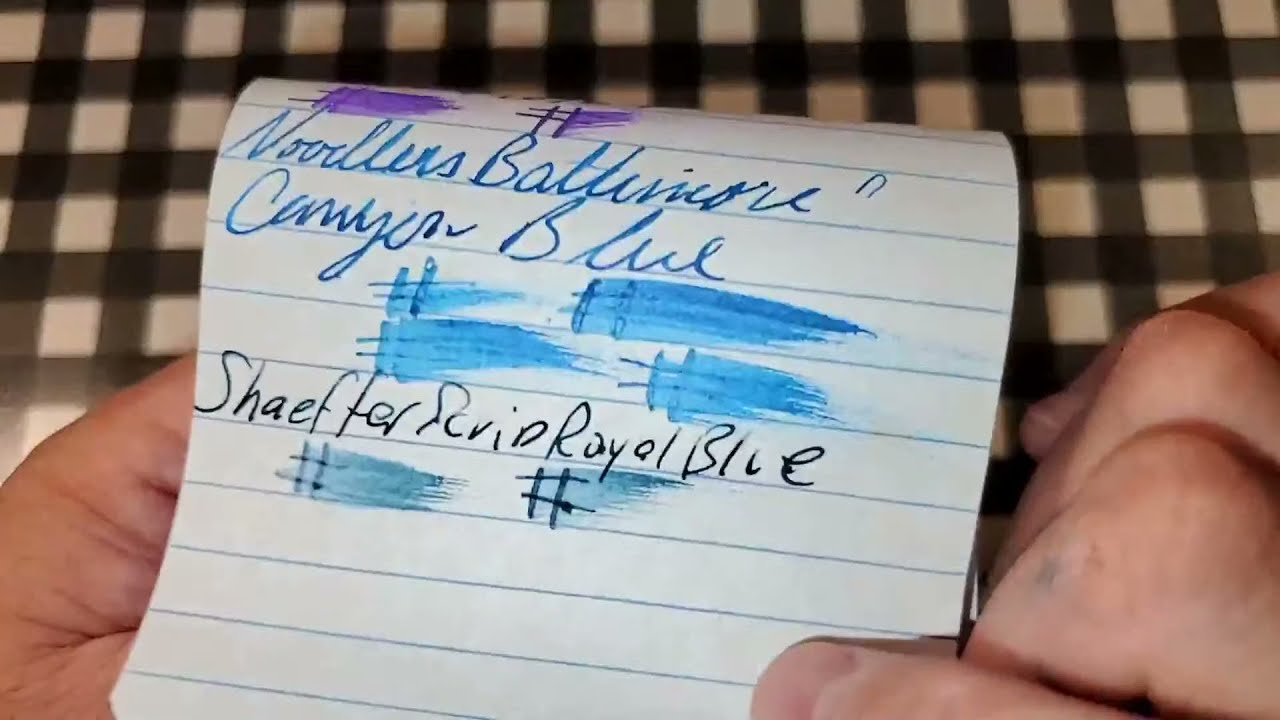 Noodlers Baltimore "
Canyon Blue
Shaeffer Scrip Royal Blue